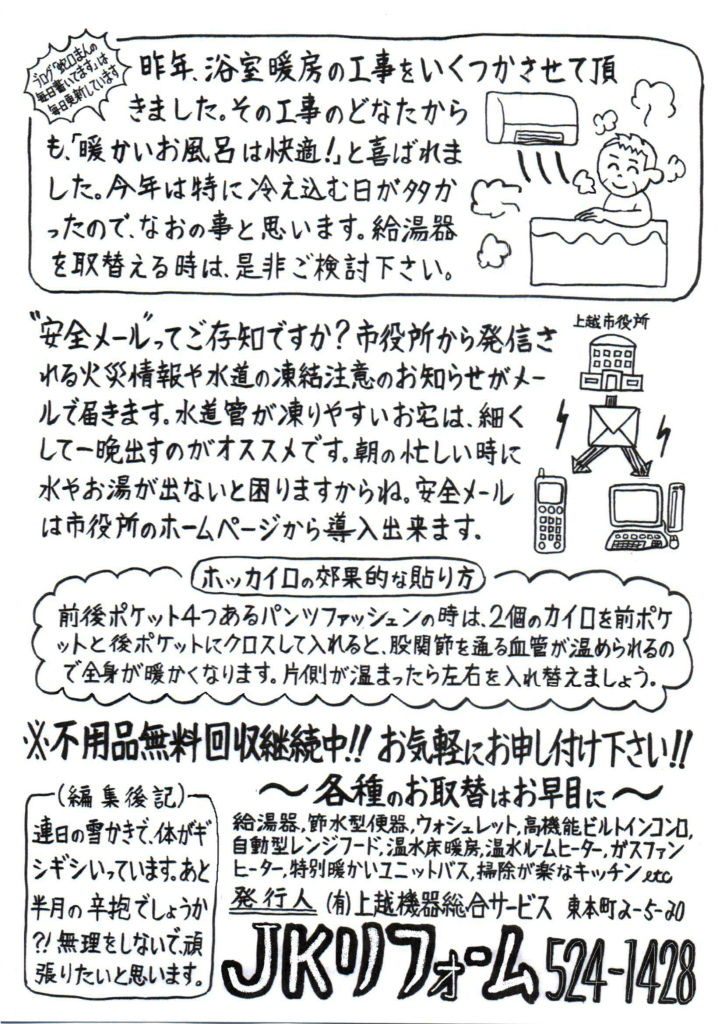 ブログ「蛇口まんの
毎日書いてます」は
毎日更新しています
昨年、浴室暖房の工事をいくつかさせて頂
きました。その工事のどなたから
も、「暖かいお風呂は快適!」と喜ばれま
した。今年は特に冷え込む日が多か
ったので、なおの事と思います。給湯器
を取替える時は、是非ご検討下さい。
"安全メール"ってご存知ですか?市役所から発信さ
れる火災情報や水道の凍結注意のお知らせがメー
ルで届きます。水道管が凍りやすいお宅は、細く
して一晩出すのがオススメです。朝の忙しい時に
水やお湯が出ないと困りますからね。安全メール
は市役所のホームページから導入出来ます。
上越市役所
ホッカイロの効果的な貼り方
前後ポケット4つあるパンツファッションの時は、2個のカイロを前ポケ
ットと後ポケットにクロスして入れると、股関節を通る血管が温められるの
で全身が暖かくなります。片側が温まったら左右を入れ替えましょう。
※不用品無料回収継続中!! お気軽にお申し付け下さい!!
(編集後記)
連日の雪かきで、体がギ
シギシいっています。あと
半月の辛抱でしょうか
?!無理をしないで、頑
張りたいと思います。
～各種のお取替はお早目に～
給湯器,節水型便器,ウォシュレット,高機能ビルトインコンロ,
自動型レンジフード,温水床暖房,温水ルームヒーター,ガスファン
ヒーター,特別暖かいユニットバス,掃除が楽なキッチンetc
発行人 (有)上越機器総合サービス 東本町2-5-20
JKリフォーム 524-1428